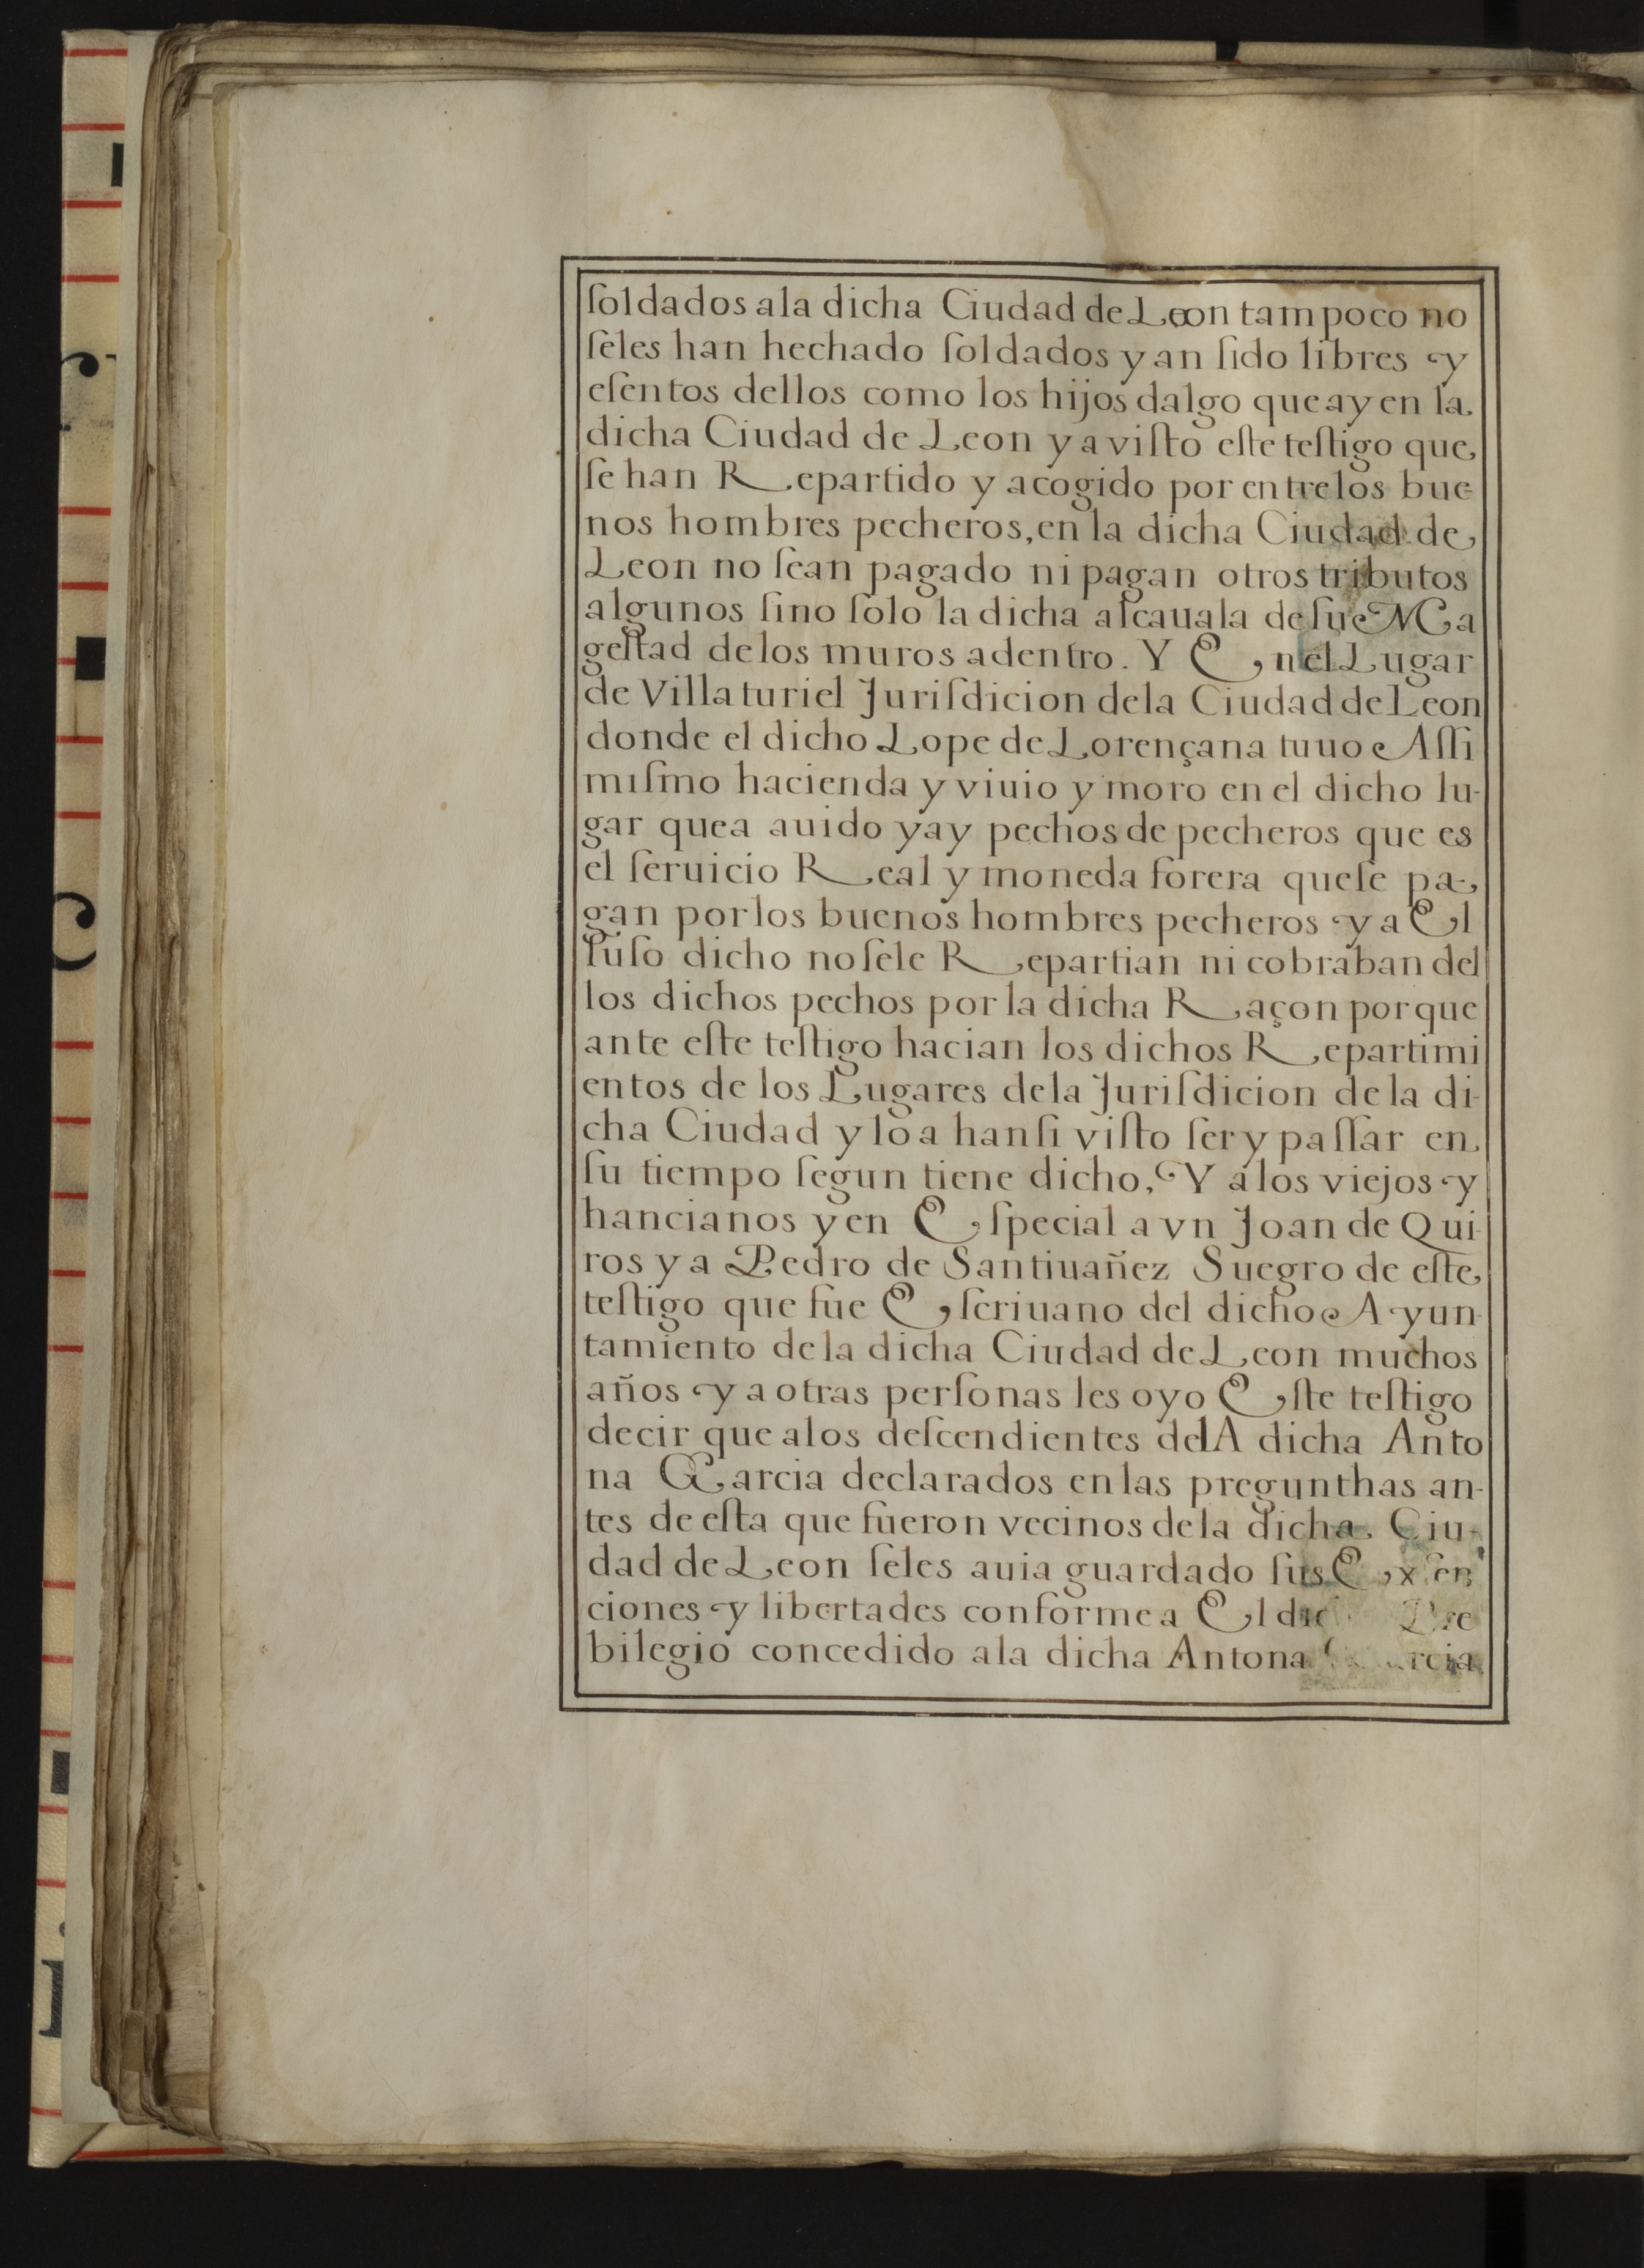 ſoldados ala dicha Ciudad de Leon tampoco no
ſeles han hechado ſoldados y an ſido libres y
eſentos dellos como los hijos dalgo que ay en la
dicha Ciudad de Leon y a viſto eſte teſtigo que
ſe han Repartido y acogido por entre los bue
nos hombres pecheros, en la dicha Ciudad de
Leon no ſean pagado ni pagan otros tributos
algunos ſino ſolo la dicha alcauala de ſu Ma
geſtad de los muros adentro. Y En el Lugar
de Villaturiel Juriſdicion dela Ciudad de Leon
donde el dicho Lope de Lorençana tuuo Aſſi
miſmo hacienda y viuio y moro en el dicho lu-
gar que a auido y ay pechos de pecheros que es
el ſeruicio Real y moneda forera queſe pa-
gan por los buenos hombres pecheros y a El
ſuſo dicho no ſele Repartian ni cobraban del
los dichos pechos por la dicha Raçon porque
ante eſte teſtigo hacian los dichos Repartimi
entos de los Lugares dela Juriſdicion de la di-
cha Ciudad y lo a hanſi viſto ſer y paſſar en
ſu tiempo ſegun tiene dicho, Y a los viejos y
hancianos y en Eſpecial a vn Joan de Qui-
ros y a Pedro de Santiuañez Suegro de eſte
teſtigo que fue Eſcriuano del dicho Ayun-
tamiento de la dicha Ciudad de Leon muchos
años y a otras perſonas les oyo Eſte teſtigo
decir que alos deſcendientes delA dicha Anto
na Garcia declarados en las pregunthas an-
tes de eſta que fueron vecinos dela dicha Ciu-
dad de Leon ſeles auia guardado ſus Exſen
ciones y libertades conforme a El Pre
bilegio concedido ala dicha Antona